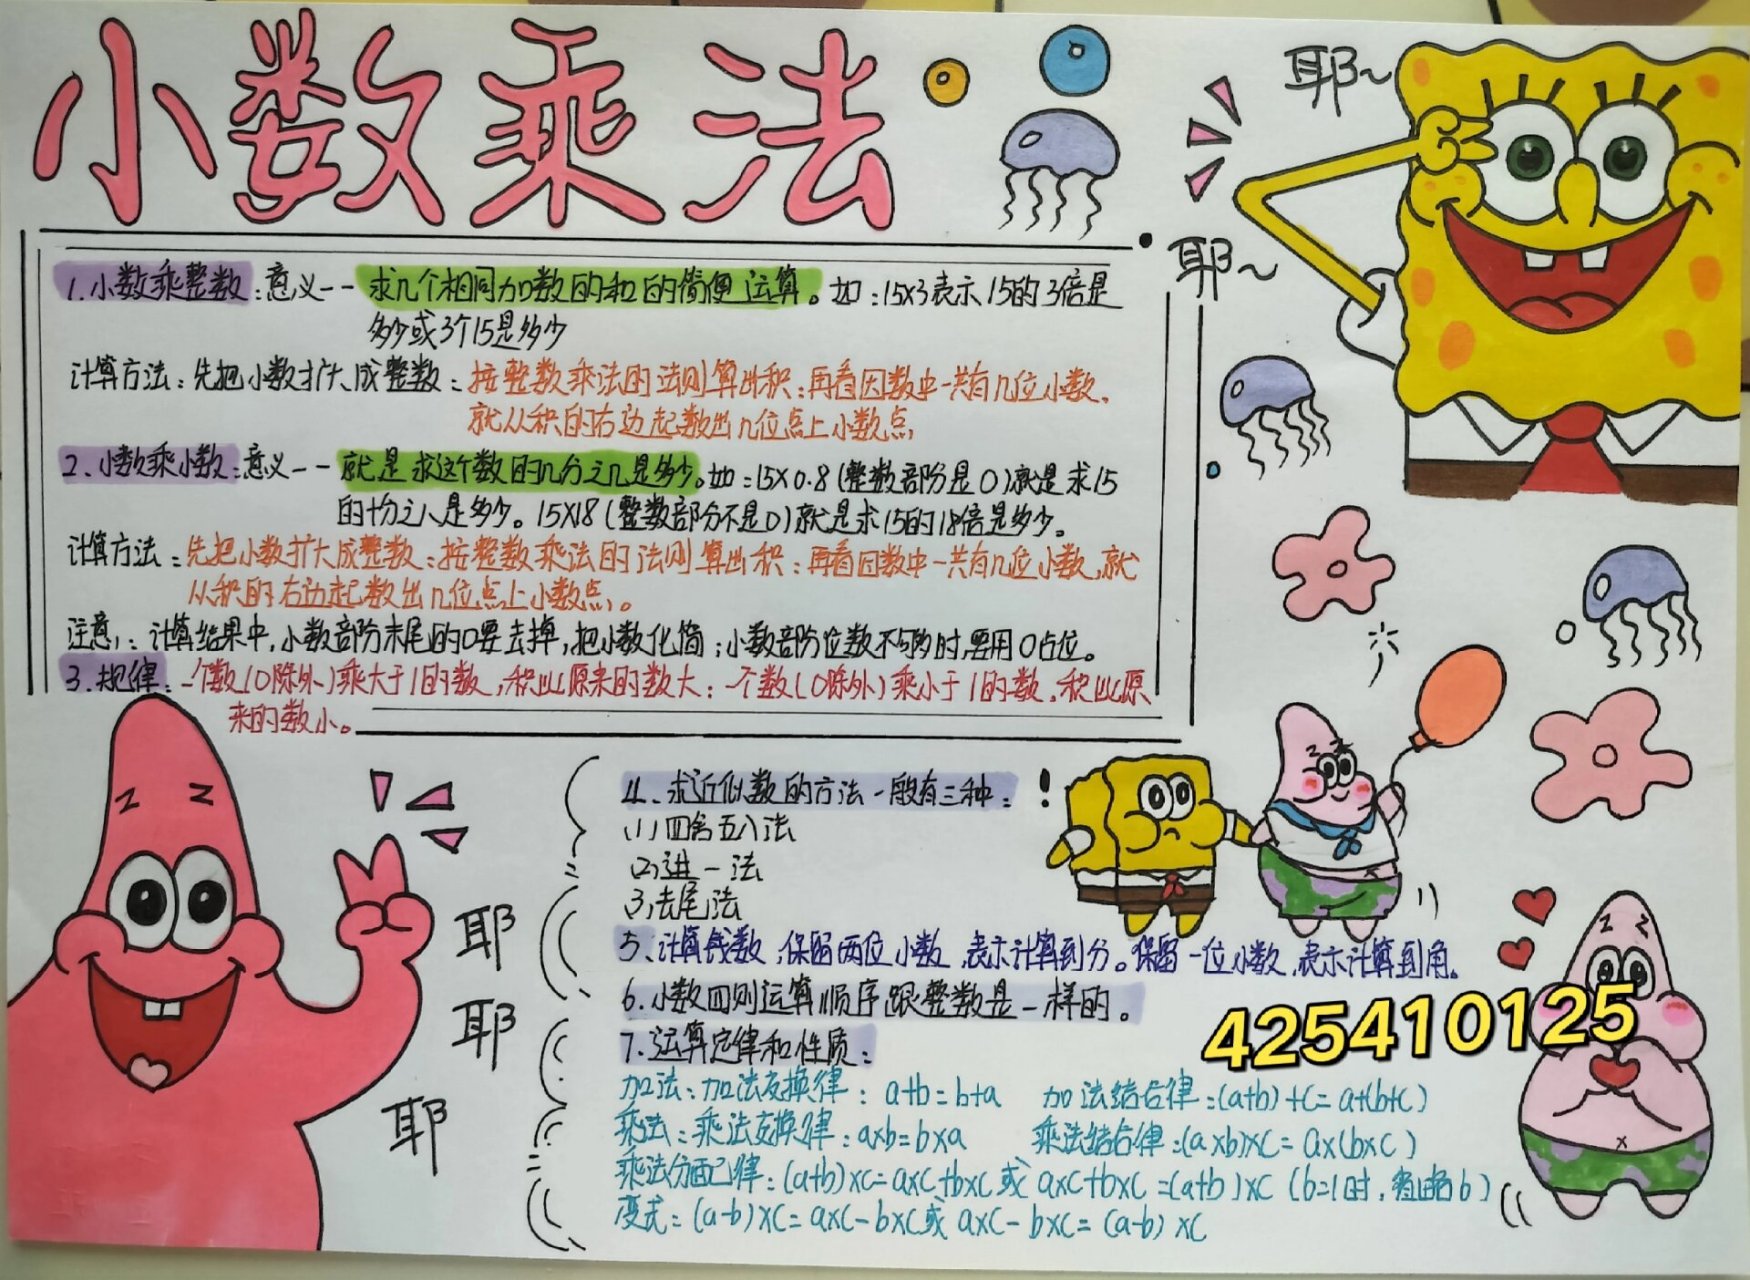 小数乘法
耶~
耶~
1.小数乘整数:意义--求几个相同加数的和的简便运算。如:15×3表示15的3倍是
多少或3个15是多少
计算方法:先把小数扩大成整数:按整数乘法的法则算出积;再看因数中一共有几位小数,
就从积的右边起数出几位点上小数点,
2.小数乘小数:意义--就是求这个数的几分之几是多少。如:15×0.8(整数部分是0)就是求15
的十分之八是多少。15×18(整数部分不是0)就是求15的18倍是多少。
计算方法:先把小数扩大成整数:按整数乘法的法则算出积:再看因数中一共有几位小数,就
从积的右边起数出几位点上小数点,。
注意,:计算结果中,小数部分末尾的0要去掉,把小数化简;小数部分位数不够时,要用0占位。
3.规律:一个数(0除外)乘大于1的数,积比原来的数大;一个数(0除外)乘小于1的数,积比原
来的数小。
耶
耶
耶
4、求近似数的方法一般有三种:
(1)四舍五入法
(2)进一法
(3)去尾法
5、计算钱数,保留两位小数,表示计算到分。保留一位小数,表示计算到角。
6.小数四则运算顺序跟整数是一样的。
7.运算定律和性质:
加法:加法交换律:a+b=b+a 加法结合律:(a+b)+c=a+(b+c)
乘法:乘法交换律:a×b=b×a 乘法结合律:(a×b)×c=a×(b×c)
乘法分配律:(a+b)×c=a×c+b×c或a×c+b×c=(a+b)×c (b=1时,省略b)
变式:(a-b)×c=a×c-b×c或a×c-b×c=(a-b)×c
425410125